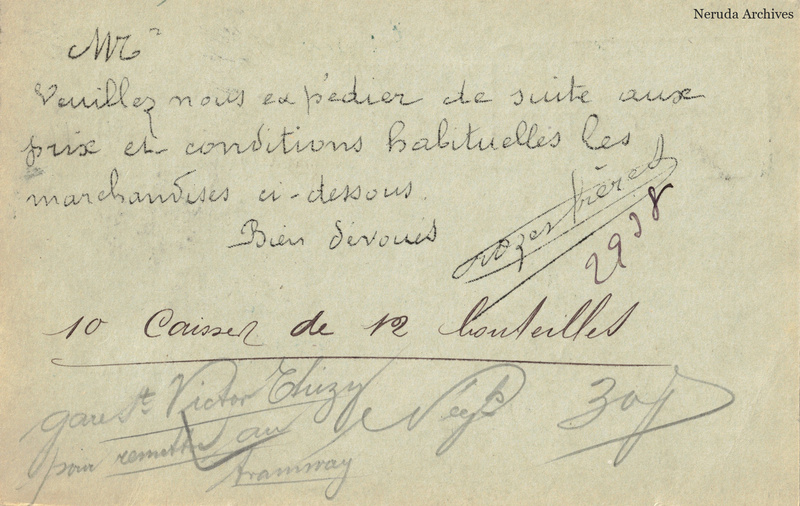 Neruda Archives
Mr
Veuillez nous expédier de suite aux
prix et conditions habituelles les
marchandises ci-dessous.
Bien dévoués
frères
2938
10 Caisses de 12 bouteilles
gare St Victor Thizy
pour remettre au
tramway
30 f